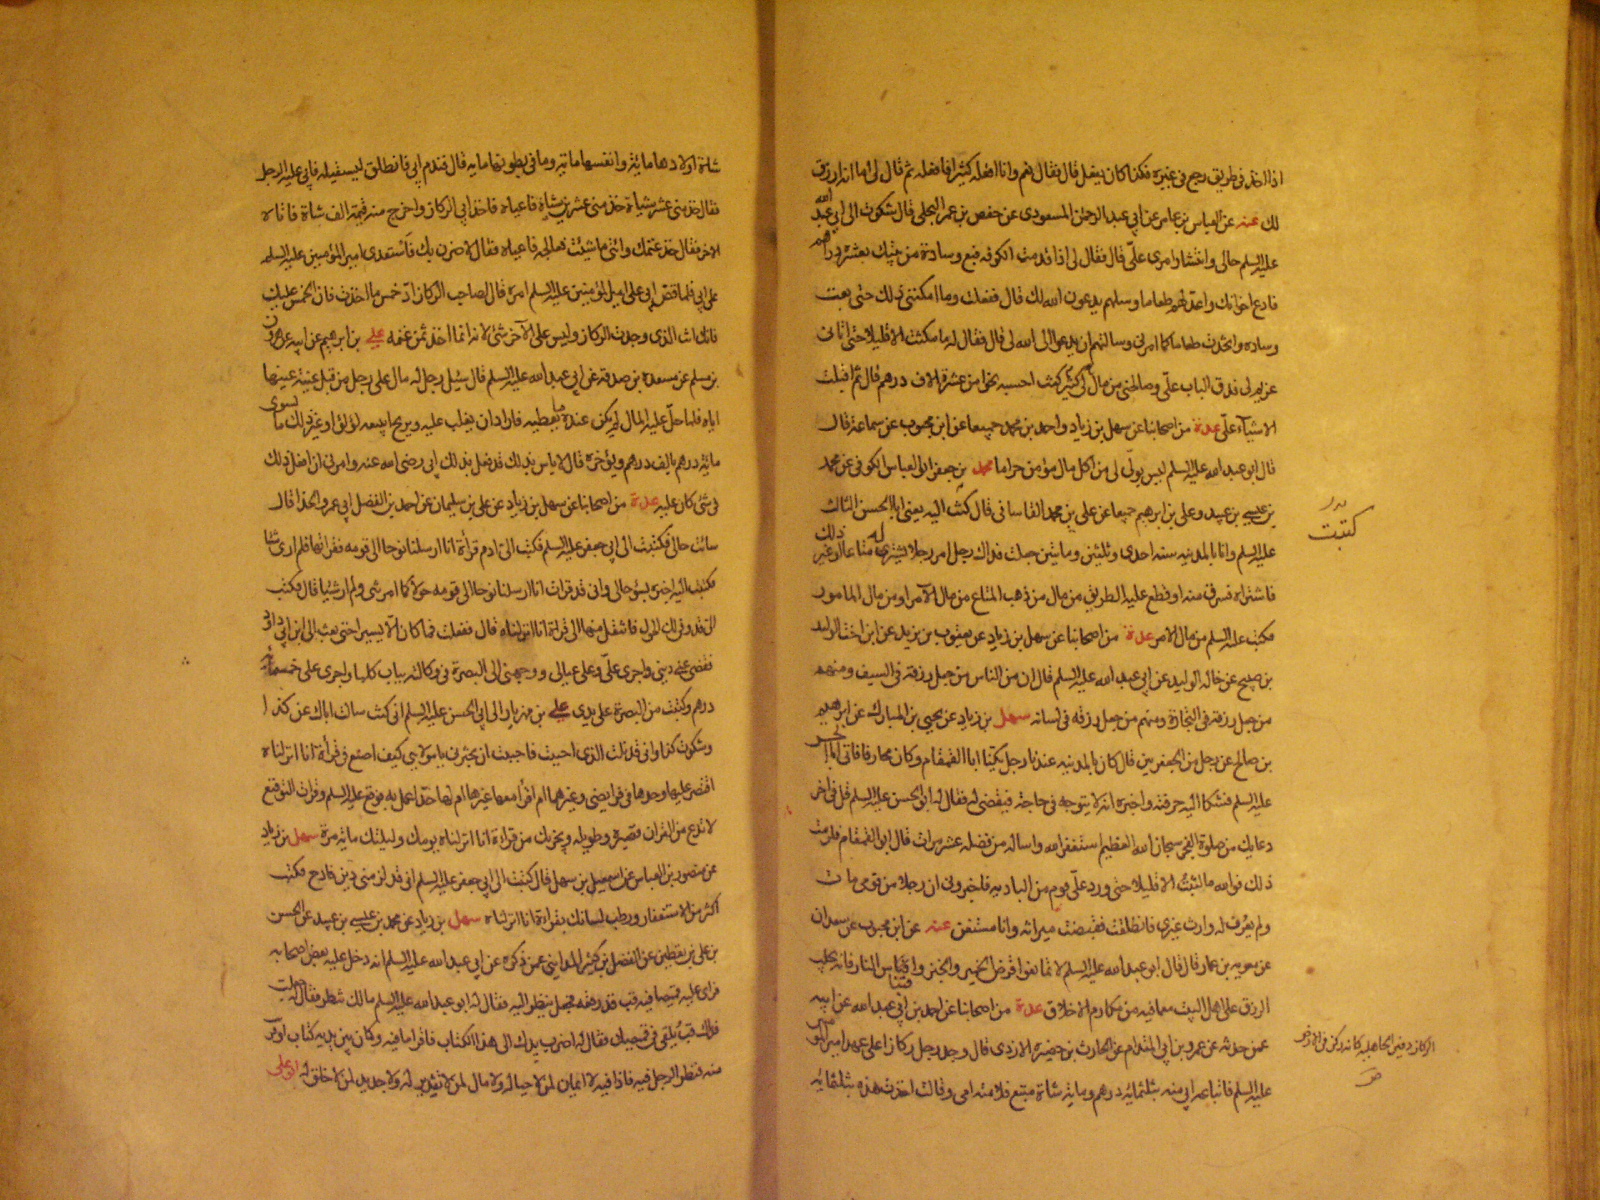 اذا اخذ فى طريق رجع فى غيره فكذا كان يفعل قال فقال نعم وانا افعله كثيرا فافعله ثم قال لى اما انه ارزق
لك عنه عن العباس بن عامر عن ابى عبد الرحمن المسعودى عن حفص بن عمر البجلى قال شكوت الى ابى عبد الله
عليه السلم حالى وانتشار امرى علىّ قال فقال لى اذا قدمت الكوفه فبع وسادة من بيتك بعشرة دراهم
فادع اخوانك واعد لهم طعاما وسلهم يدعون الله لك قال ففعلت وما امكننى ذلك حتى بعت
وساده واتخذت طعاما كما امرنى وسالتهم ان يدعوا الله لى قال فوالله ما مكثت الا قليلا حتى اتانى
غريم لى فدق الباب علىّ وصالحنى من مال لى كثير كنت احسبه نحوا من عشرة الاف درهم قال ثم اقبلت
الاشيآء علىّ عدة من اصحابنا عن سهل بن زياد واحمد بن محمد جميعا عن ابن محبوب عن سماعة قال
قال ابو عبد الله عليه السلم ليس بولى لى من اكل مال مؤمن حراما محمد بن جعفر ابو العباس الكوفى عن محمد
بن عيسى بن عبيد وعلى بن ابرهيم جميعا عن على بن محمد القاسانى قال كتبت اليه يعنى ابا الحسن الثالث
عليه السلم وانا بالمدينه سنه احدى وثلثين ومايتين جعلت فداك رجل امر رجلا يشترى له متاعا او غير ذلك
فاشتراه فسرق منه او قطع عليه الطريق من مال من ذهب المتاع من مال الآمر او من مال المامور
فكتب عليه السلم من مال الامر عدة من اصحابنا عن سهل بن زياد عن يعقوب بن يزيد عن ابن اخت الوليد
بن صبيح عن خاله الوليد عن ابى عبد الله عليه السلم قال ان من الناس من جعل رزقه فى السيف ومنهم
من جعل رزقه فى التجارة ومنهم من جعل رزقه فى لسانه سهل بن زياد عن يحيى بن المبارك عن ابرهيم
بن صالح عن رجل من الجعفريين قال كان بالمدينه عندنا رجل يكنى ابا القمقام وكان محارفا فاتى ابا الحسن
عليه السلم فشكا اليه حرفته واخبره انه لا يتوجه فى حاجة فيقضى له فقال له ابو الحسن عليه السلم قل فى اخر
دعايك من صلوة الفجر سبحان الله العظيم استغفر الله واساله من فضله عشر مرات قال ابو القمقام فلزمت
ذلك فوالله ما لبثت الا قليلا حتى ورد علىّ قوم من الباديه فاخبرونى ان رجلا من قومى مات
ولم يعرف له وارث غيرى فانطلقت فقبضت ميراثه وانا مستغن عنه عن ابن محبوب عن سعدان
عن معويه بن عمار قال قال ابو عبد الله عليه السلم لا تمانعوا قرض الخمير والخبز واقتباس النار فانه يجلب
الرزق على اهل البيت مع ما فيه من مكارم الاخلاق عدة من اصحابنا عن احمد بن ابى عبد الله عن ابيه
عمن حدثه عن عمرو بن ابى المقدام عن الحارث بن حضيرة الازدى قال وجد رجل ركازا على عهد امير المؤمنين
عليه السلم فابتاعه ابى منه بثلثمايه درهم ومايه شاة متبع فلامته امى وقالت اخذت هذه بثلثمايه
كتبت
الركاز دفين الجاهليه كانه ركز فى الارض
شاة اولادها مائة وانفسها مائة وما فى بطونها مايه قال فندم ابى فانطلق ليستقيله فابى عليه الرجل
فقال خذ منى عشر شياه خذ منى عشرين شاة فاعياه فاخذ ابى الركاز واخرج منه قيمة الف شاة فاتاه
الاخر فقال خذ غنمك وائتنى ما شئت فابى فعالجه فاعياه فقال لاضرن بك فاستعدى امير المؤمنين عليه السلم
على ابى فلما قص ابى على امير المؤمنين عليه السلم امره قال لصاحب الركاز ادّ خمس ما اخذت فان الخمس عليك
فانك انت الذى وجدت الركاز وليس على الآخر شئ لانه انما اخذ ثمن غنمه على بن ابرهيم عن ابيه عن هرون
بن مسلم عن مسعدة بن صدقة عن ابى عبد الله عليه السلم قال سئل رجل له مال على رجل من قبل عينة عينها
اياه فلما حل عليه المال لم يكن عنده ما يعطيه فاراد ان يقلب عليه ويربح ايبيعه لؤلؤا وغير ذلك ما يسوى
مائة درهم بالف درهم ويؤخره قال لا باس بذلك قد فعل ذلك ابى رضى الله عنه وامرنى ان افعل ذلك
فى شئ كان عليه عدة من اصحابنا عن سهل بن زياد عن على بن سليمان عن احمد بن الفضل ابى عمرو الحذا قال
سائت حالى فكتبت الى ابى جعفر عليه السلم فكتب الى ادم قرأة انا ارسلنا نوحا الى قومه فقراتها فلم ار شيئا
فكتبت اليه اخبره بسؤ حالى وانى قد قرات انا ارسلنا نوحا الى قومه حولا كما امرتنى ولم ار شيئا قال فكتب
الى قد وفى لك الحول فانتقل منها الى قرأة انا انزلناه قال ففعلت فما كان الا يسيرا حتى بعث الى ابن ابى داود
فقضى عنى دينى واجرى علىّ وعلى عيالى ووجهنى الى البصرة فى وكالته بباب كلتا واجرى على خمسمائة
درهم وكتبت من البصرة على يدى على بن مهزيار الى ابى الحسن عليه السلم انى كنت سالت اباك عن كذا
وشكوت كذا وانى قد نلت الذى احببت فاحببت ان تخبرنى يا مولاى كيف اصنع فى قرأة انا انزلناه
اقتصر عليها وحدها فى فرايضى وغيرها ام اقرأ معها غيرها ام لها حد اعمل به فوقع عليه السلم وقرات التوقيع
لا تدع من القران قصيره وطويله ويجزيك من قراءة انا انزلناه يومك وليلتك مائة مرة سهل بن زياد
عن منصور بن العباس عن اسمعيل بن سهل قال كتبت الى ابى جعفر عليه السلم انى قد لزمنى دين فادح فكتب
اكثر من الاستغفار ورطب لسانك بقراءة انا انزلناه سهل بن زياد عن محمد بن عيسى بن عبيد عن الحسن
بن على بن يقطين عن الفضل بن كثير المداينى عمن ذكره عن ابى عبد الله عليه السلم انه دخل عليه بعض اصحابه
فراى عليه قميصا فيه قب قد رقعه فجعل ينظر اليه فقال له ابو عبد الله عليه السلم مالك تنظر فقال له جعلت
فداك قب يلقى فى قميصك فقال له اضرب يدك الى هذا الكتاب فاقرا ما فيه وكان بين يديه كتاب او قريب
منه فنظر الرجل فيه فاذا فيه لا ايمان لمن لا حياء له ولا مال لمن لا تقدير له ولا جديد لمن لا خلق له ابو على